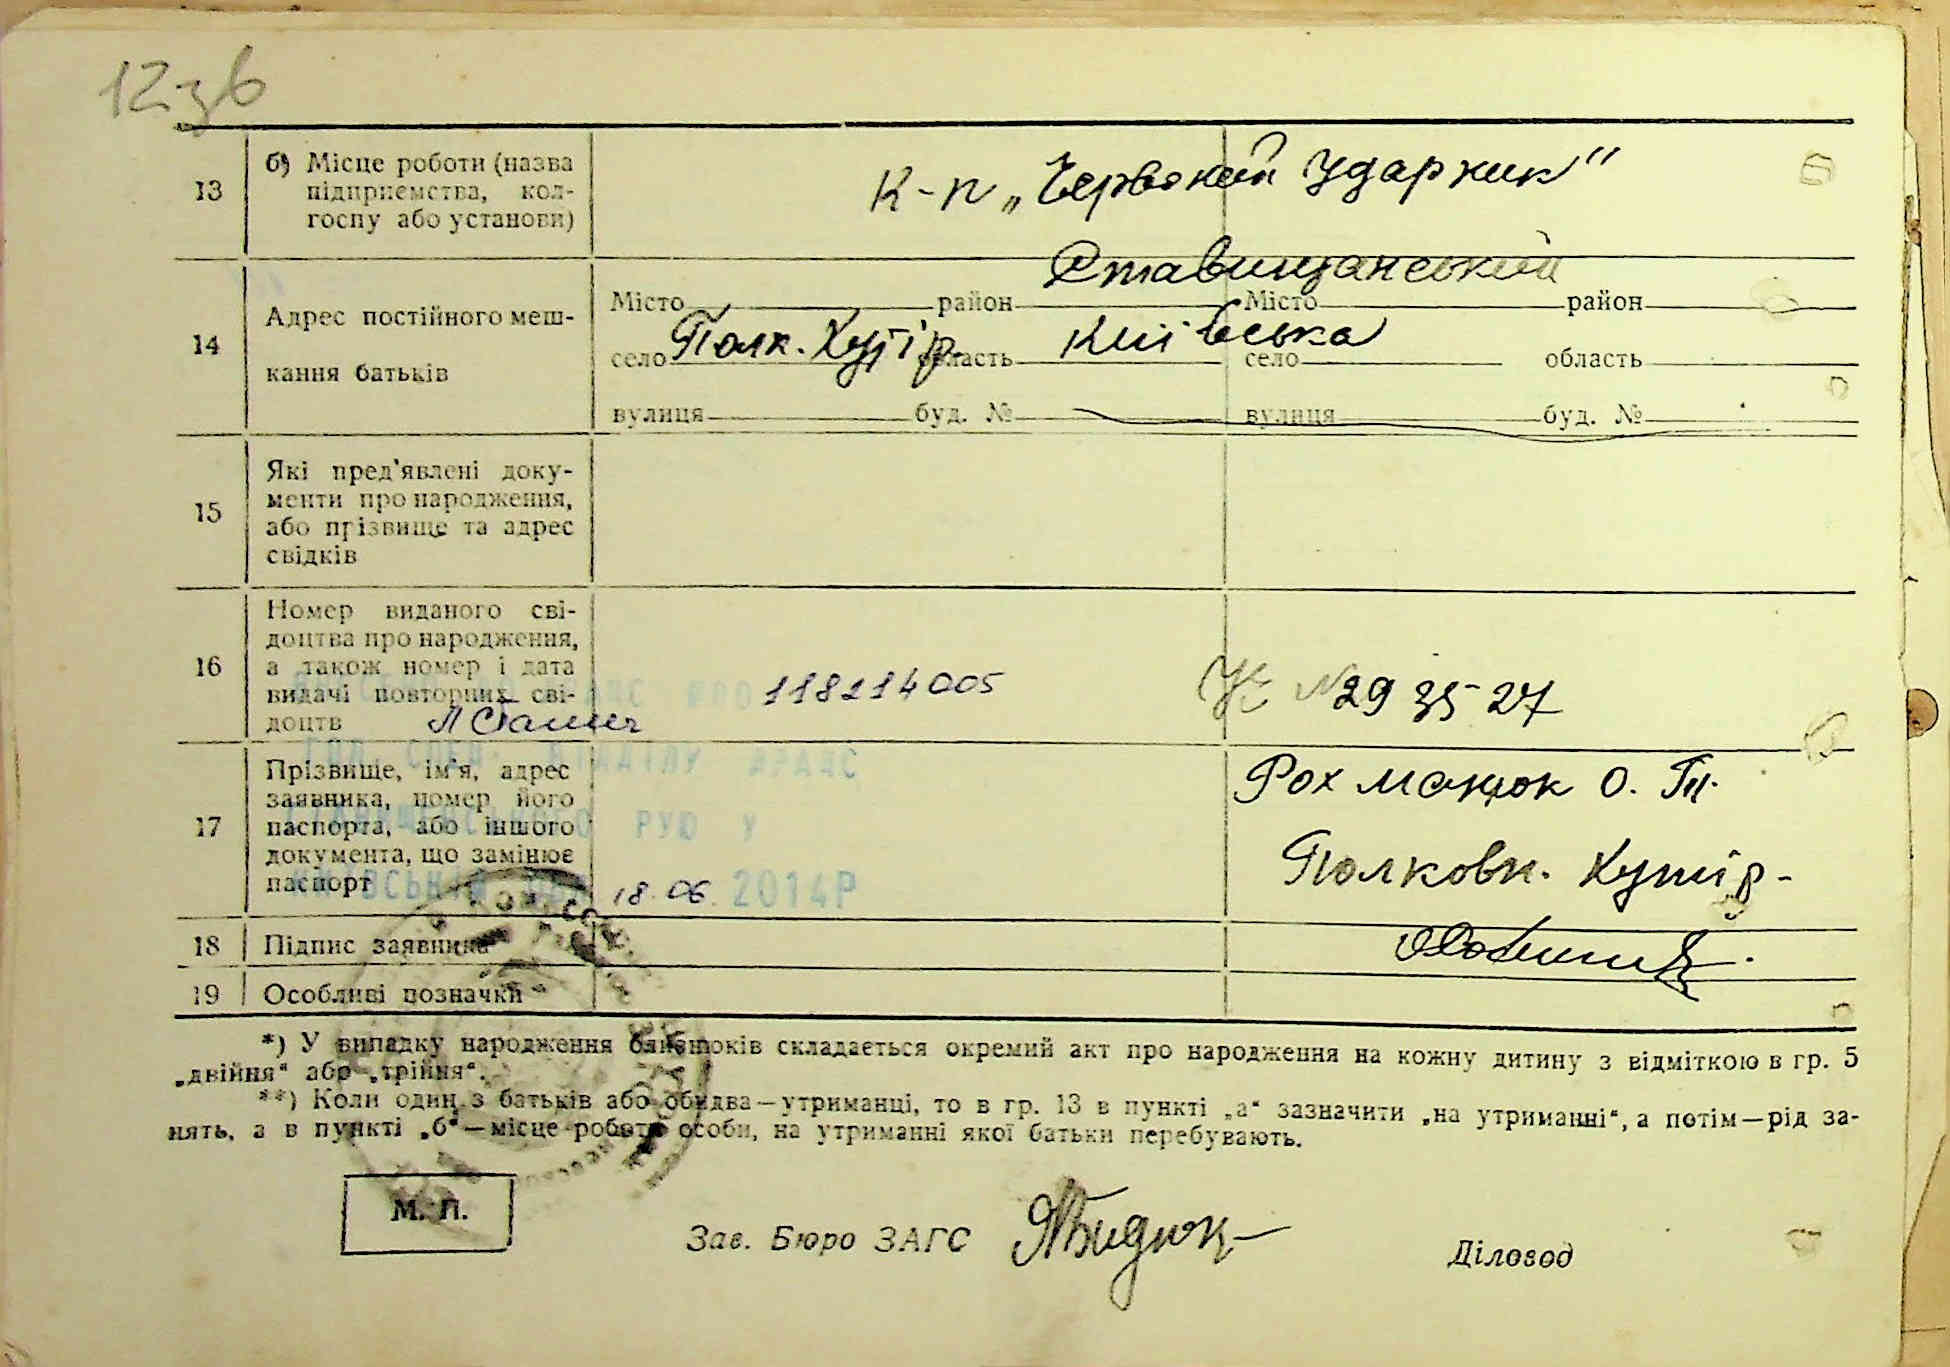 12зв
13
б) Місце роботи (назва
підприємства, кол-
госпу або установи)
К-п „Червоний Ударник"
14
Адрес постійного меш-
кання батьків
Ставищанський
Місто район Місто район
село Полк. Хутір область Київська село область
вулиця буд. № вулиця буд. №
15
Які пред'явлені доку-
менти про народження,
або прізвище та адрес
свідків
16
Номер виданого сві-
доцтва про народження,
а також номер і дата
видачі повторних сві-
доцтв
118214005
№ 29 35 27
17
Прізвище, ім'я, адрес
заявника, номер його
паспорта, або іншого
документа, що замінює
паспорт
ВІДДІЛУ ДРАЦС
РУЮ У
18.06. 2014Р
Рохманюк О. Т.
Полковн. Хутір-
18 Підпис заявника
19 Особливі позначки
*) У випадку народження близнюків складається окремий акт про народження на кожну дитину з відміткою в гр. 5
„двійня“ або „трійня“.
**) Коли один з батьків або обидва—утриманці, то в гр. 13 в пункті „а“ зазначити „на утриманні“, а потім—рід за-
нять, а в пункті „б“—місце роботи особи, на утриманні якої батьки перебувають.
М. П.
Зав. Бюро ЗАГС
Діловод